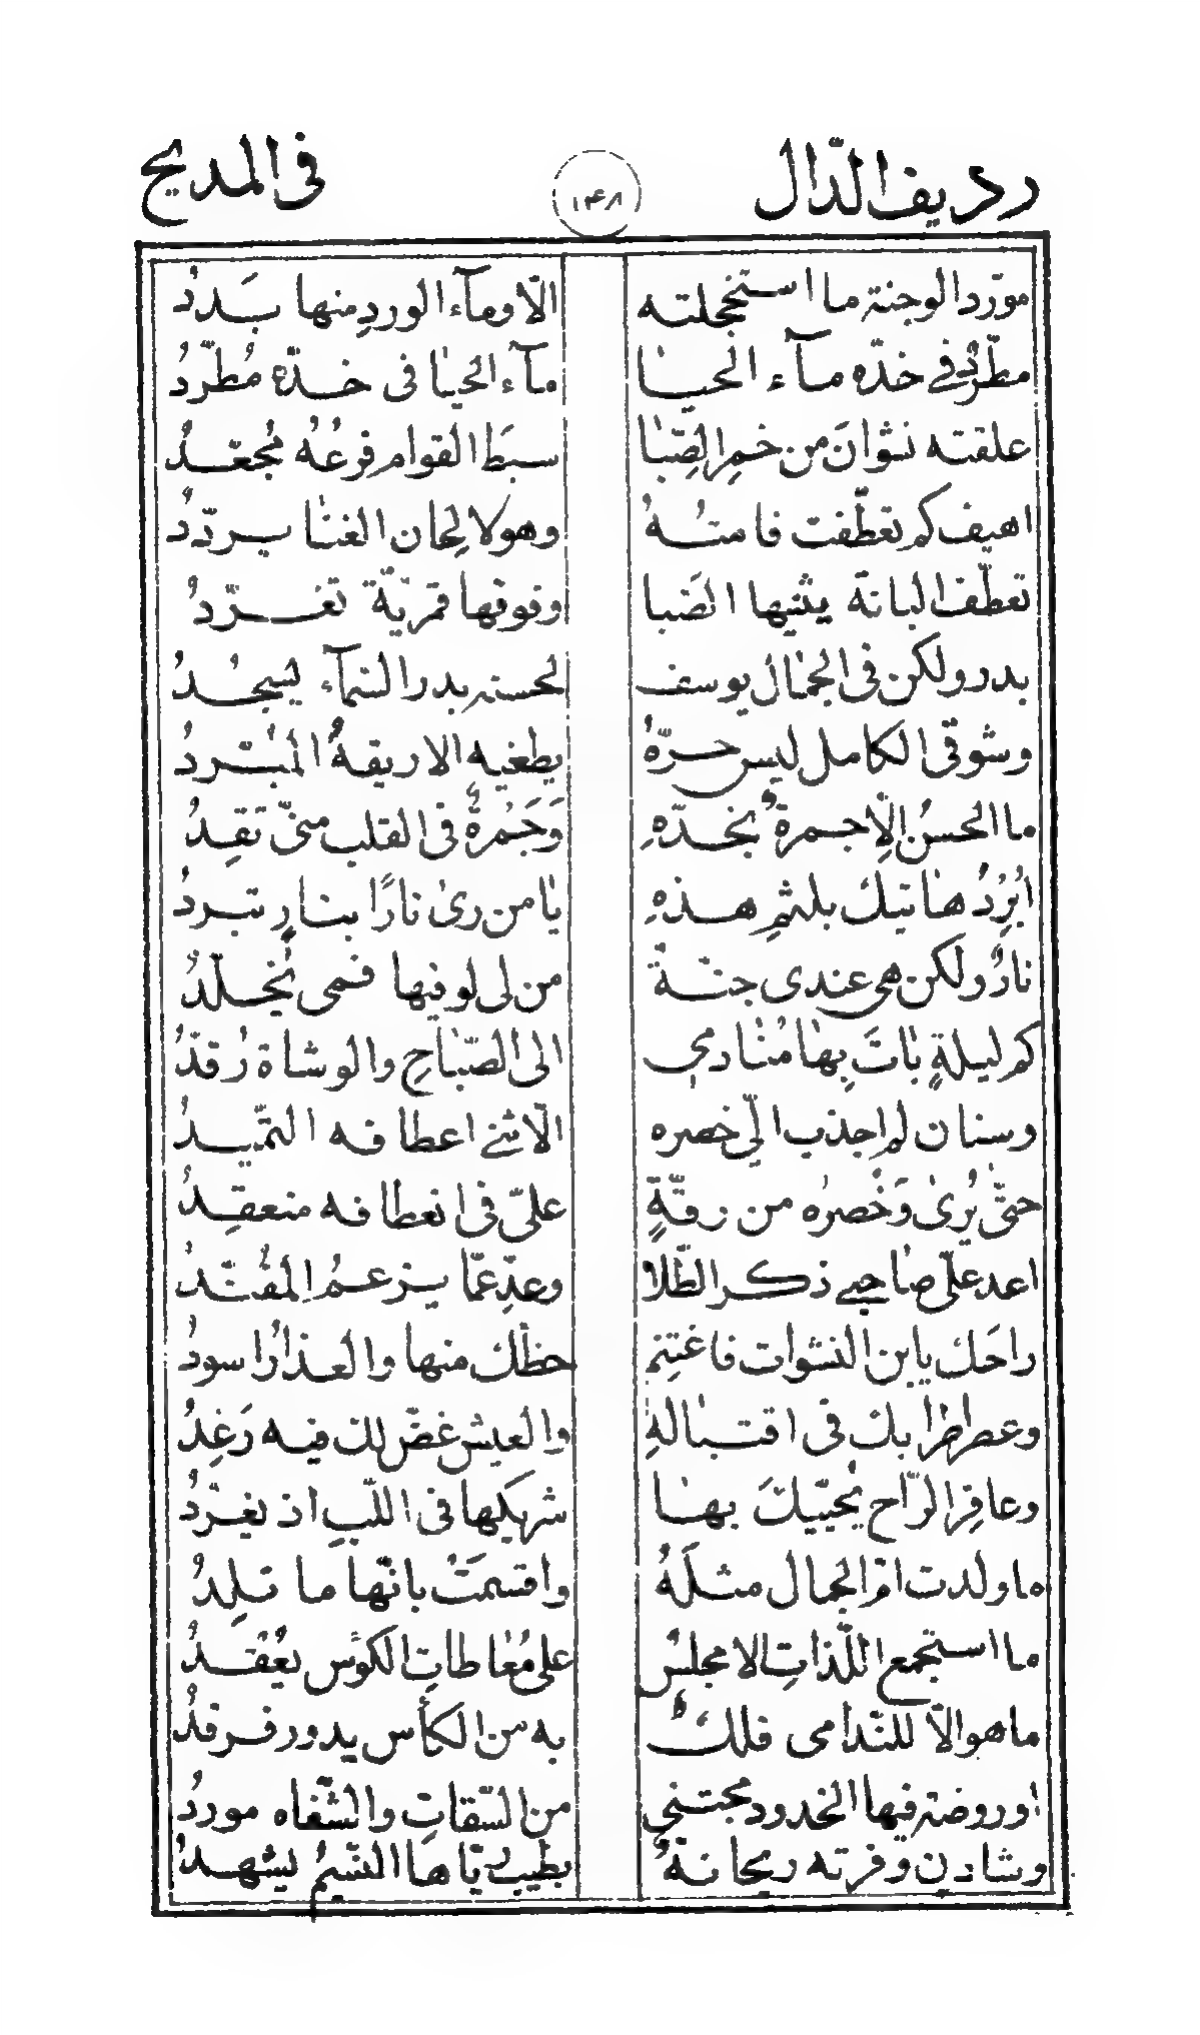 رديف الدّال ١٤٨ فى المديح
مورّد الوجنة ما استخجلته الّا ومآء الوردِ منها بَدَدُ
مطّردٌ فے خدّه مآء الحيا مآء الحيا فى خدّهِ مُطّردُ
علقته نشوانَ من خمرِ الصِّبا سبَط القوام فرعُهُ مُجعّدُ
اهيف كم تعطّفت قامتُهُ وهو لالحان الغنا يردّدُ
تعطّف البانة يثنيها الصَبا وفوقها قمريّة تغرّدُ
بدر ولكن فى الجمال يوسف لحسنه بدر السّمآء يسجُدُ
وشوقى الكامل ليس حرّهُ يطفيه الا ريقهُ المُبَرّدُ
ما الحسنُ الّا جمرةٌ بخدّهِ وَجَمرةٌ فى القلب منّى تَقِدُ
ابُرِدُ هاتيك بلثمِ هذهِ يا من رىٰ نارًا بنارٍ تبردُ
نارٌ ولكن هى عندى جنّةٌ من لى لو فيها فمى يُخلّدُ
كم ليلةٍ باتَ بِها مُنادمى الى الصّباحِ والوشاة رُقدُ
وسنان لم اجذب الىّ خصره الّا ثنے اعطافه التميّدُ
حتّى يُرىٰ وَخصرُه من رقّةٍ علىّ فى انعطافه منعقِدُ
اعد علىّ صاحبے ذكر الطّلا وعدِّ عمّا يزعمُ المُفنّدُ
راحَك يابن النشوات فاغتنِم حظّك منها والعذارُ اسودُ
وعصر اطرابك فى اقتبالهِ والعيش غضّ لك فيه رَغِدُ
وعاقِرِ الرّاح يُحيّيكَ بها شريكها فى اللّبِ اذ يغرّدُ
ما ولدت امّ الجمال مثلَهُ واقسمَتْ بانّها ما تلِدُ
ما استجمع اللّذاتِ الا مجلسٌ على مُعاطاتِ الكؤس يُعْقدُ
ما هو الّا للنّدامى فلكٌ به من الكأس يدور فرقدُ
او روضة فيها الخدود مجتنى من السّقاتِ والشّفاه موردُ
وشادن وفرته ريحانةٌ بطيب ريّاها النّسيمُ يشهدُ